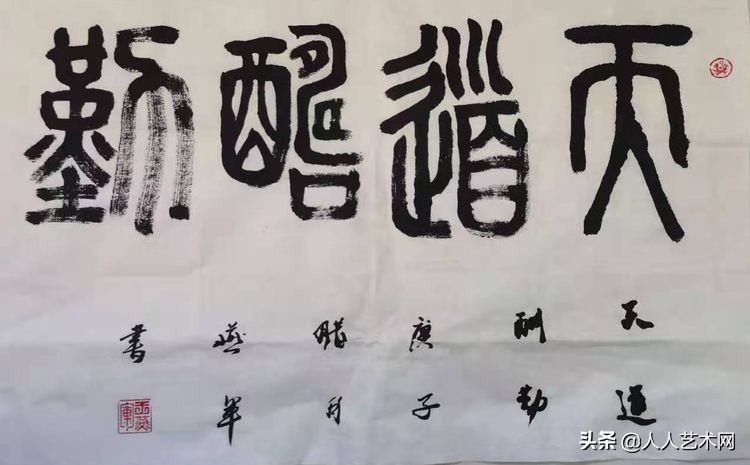 天道酬勤
天道
酬勤
庚子
腊月
燕军
書
头条 @人人艺术网